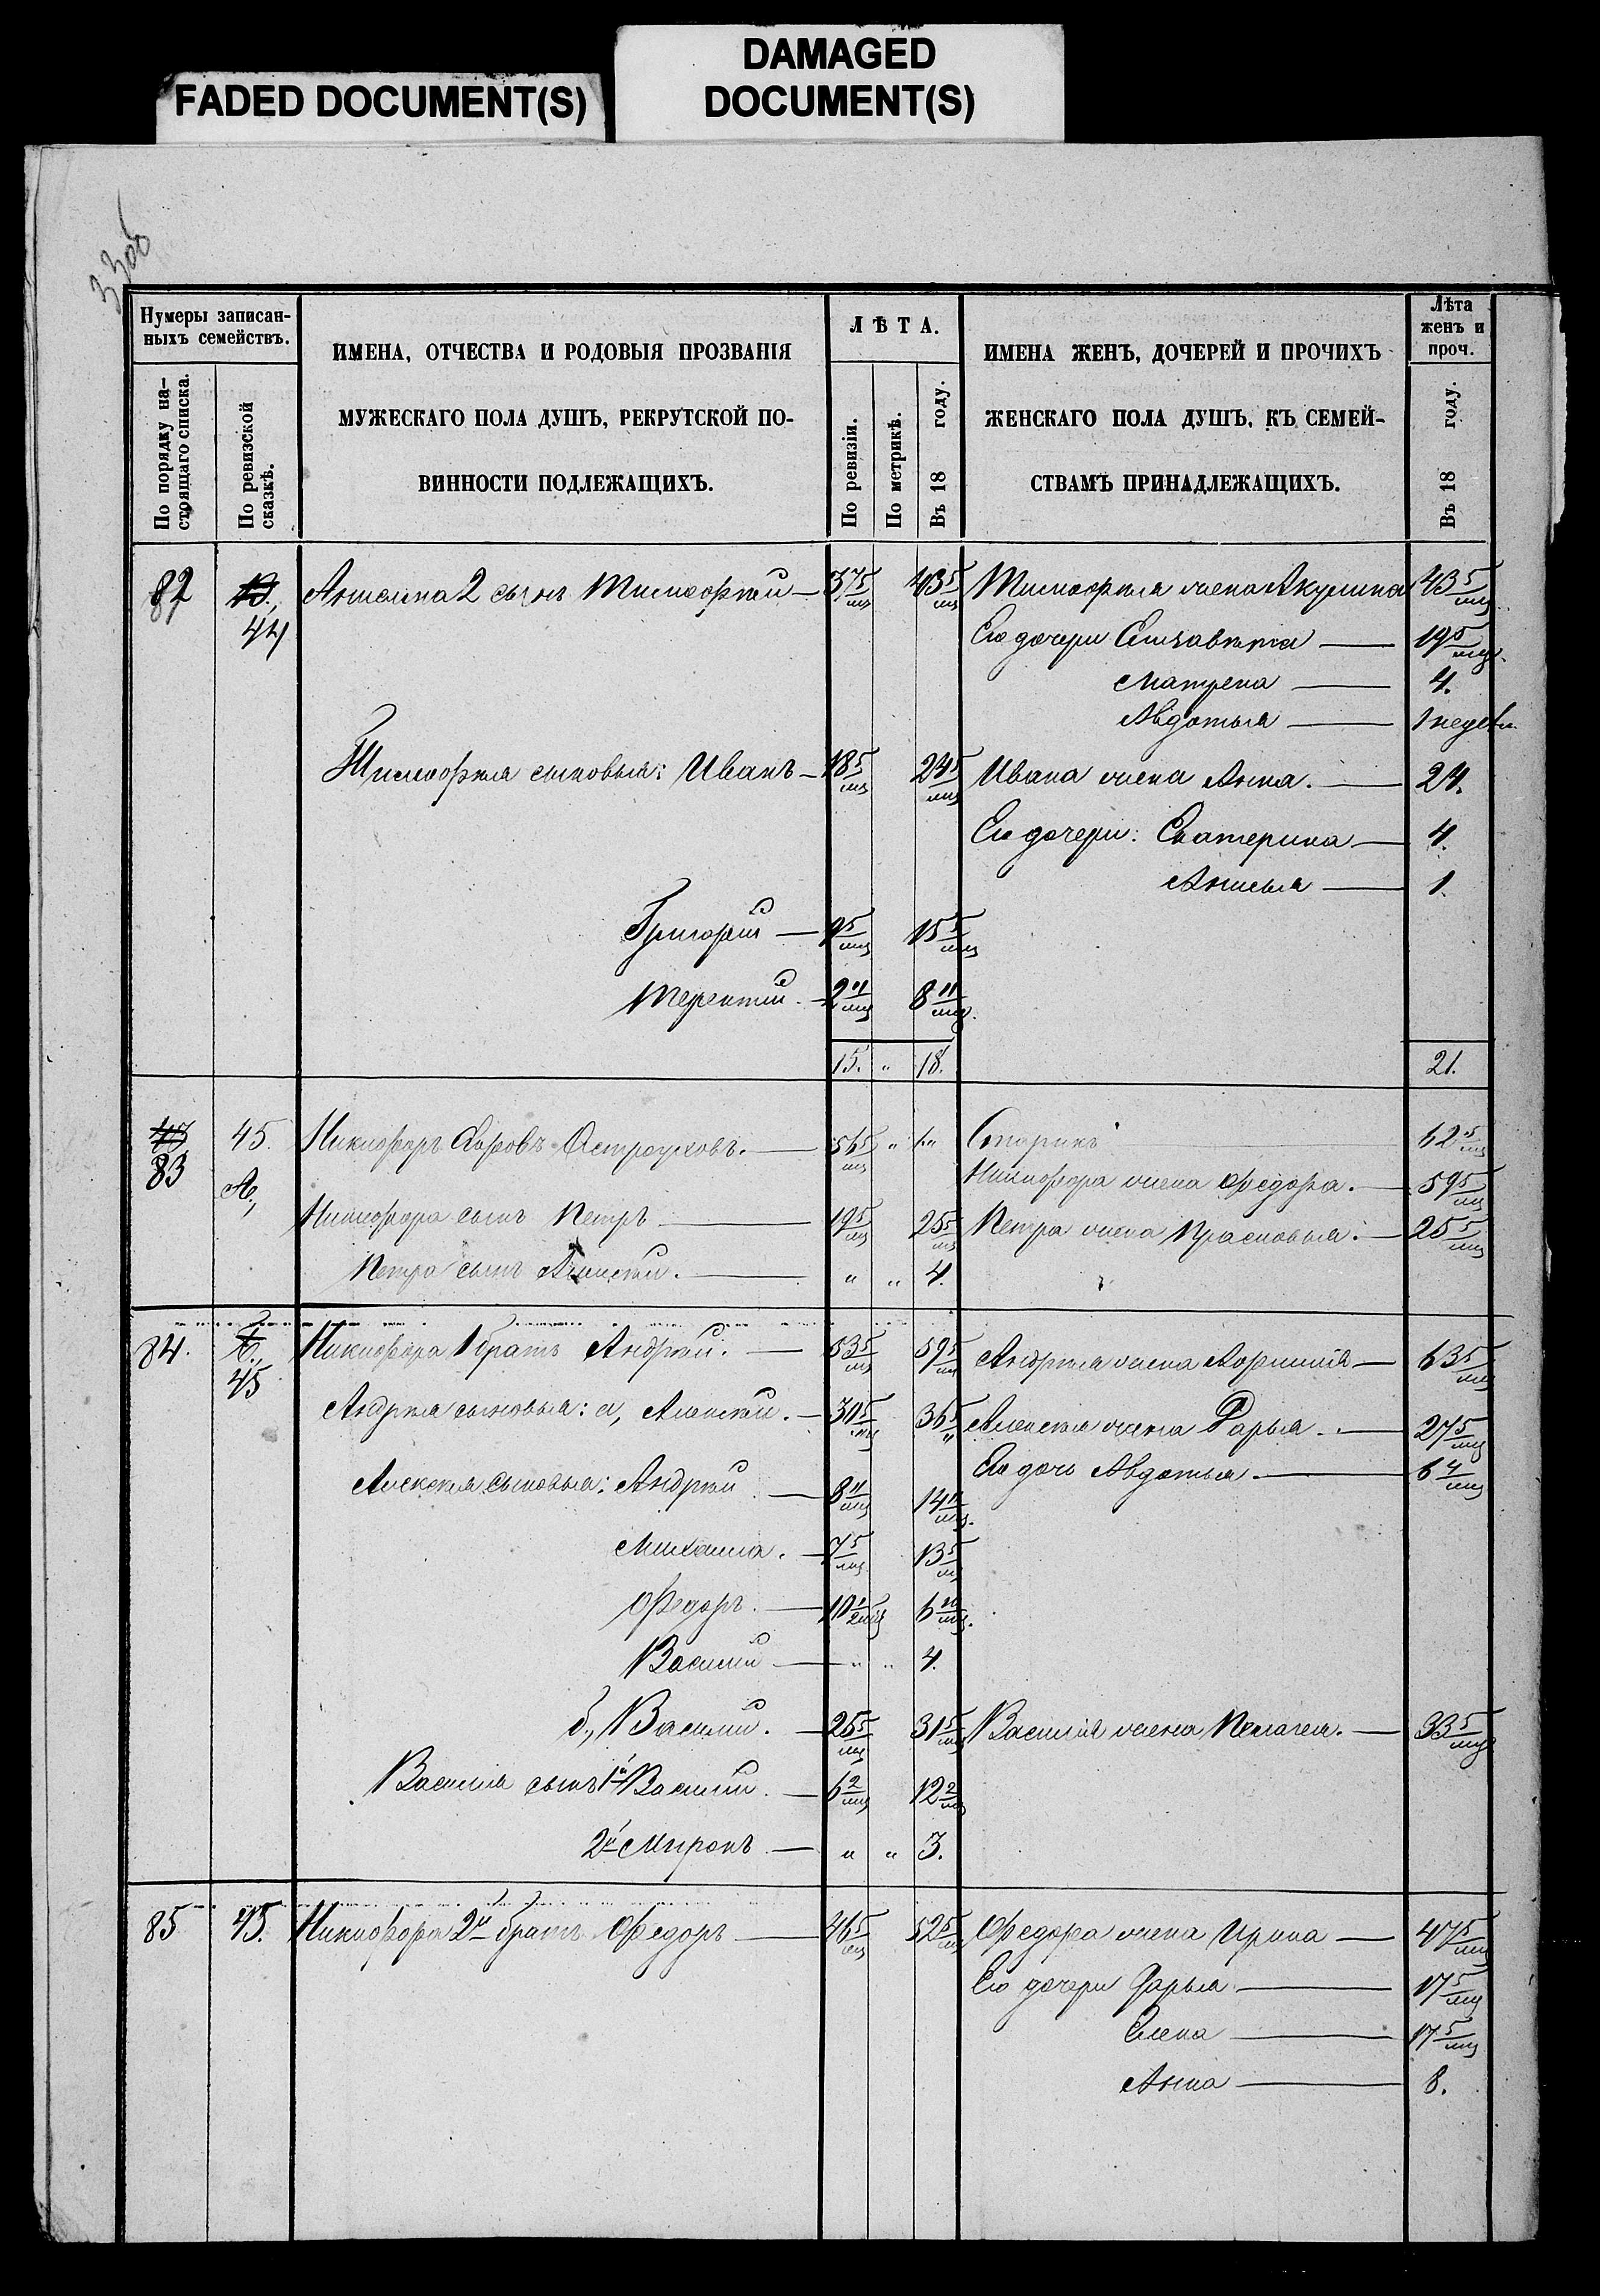 FADED DOCUMENT(S)
DAMAGED
DOCUMENT(S)
33об
Нумеры записан-
ныхъ семействъ.
По порядку на-
стоящаго списка.
По ревизской
сказкѣ.
ИМЕНА, ОТЧЕСТВА И РОДОВЫЯ ПРОЗВАНІЯ
МУЖЕСКАГО ПОЛА ДУШЪ, РЕКРУТСКОЙ ПО-
ВИННОСТИ ПОДЛЕЖАЩИХЪ.
ЛѢТА.
По ревизіи.
По метрикѣ.
Въ 18 году.
ИМЕНА ЖЕНЪ, ДОЧЕРЕЙ И ПРОЧИХЪ
ЖЕНСКАГО ПОЛА ДУШЪ, КЪ СЕМЕЙ-
СТВАМЪ ПРИНАДЛЕЖАЩИХЪ.
Лѣта
женъ и
проч.
Въ 18 году.
82 44 2 сынъ Тимофей 37 5/мц 43 5/мц Тимофея жена Акулина 43 5/мц
Его дочери Елизавѣта 19 5/мц.
Матрена 4.
Авдотья 1 недѣл.
Тимофея сыновья: Иванъ 18 5/мц 24 5/мц Ивана жена Анна. 24.
Его дочери: Екатерина 4.
Анисья 1.
Григорій 9 5/мц 15 5/мц
Терентій. 2 11/мц 8 11/мц.
15. " 18. 21.
83 45. А, Никифоръ Остроуховъ. 56 5/мц " Старикъ 62 5/мц
Никифора жена Федора. 59 5/мц
Никифора сынъ Петръ 19 5/мц 25 5/мц Петра жена Прасковья. 25 5/мц
Петра сынъ Алексѣй. " " 4.
84. 45 Никифора 1 братъ Андрей. 53 5/мц 59 5/мц Андрея жена 63 5/мц
Андрея сыновья: а, Алексѣй. 30 5/мц 36 5/" Алексѣя жена Дарья. 27 5/мц
Его дочь Авдотья. 6 4/мц
Алексѣя сыновья: Андрей 8 11/мц 14 11/мц.
Михаила. 7 5/мц 13 5/мц
Федоръ. 6 10/мц.
Василій " " 4.
б., Василій. 25 5/мц 31 5/мц Василія жена Пелагея. 33 5/мц
Василія сынъ 1й Василій. 6 2/мц 12 2/мц
2й Миронъ " " 3.
85 45. Никифора 2й братъ Федоръ 46 5/мц 52 5/мц Федора жена Ирина 47 5/мц
Его дочери Дарья 17 5/мц
Елена 17 5/мц
Анна 8.